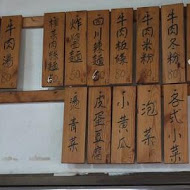 牛肉冬粉
牛肉米粉
牛肉板條
四川辣麵
炸醬麵
榨菜肉絲麵
牛肉湯
各式小菜
泡菜
小黃瓜
皮蛋豆腐
燙青菜